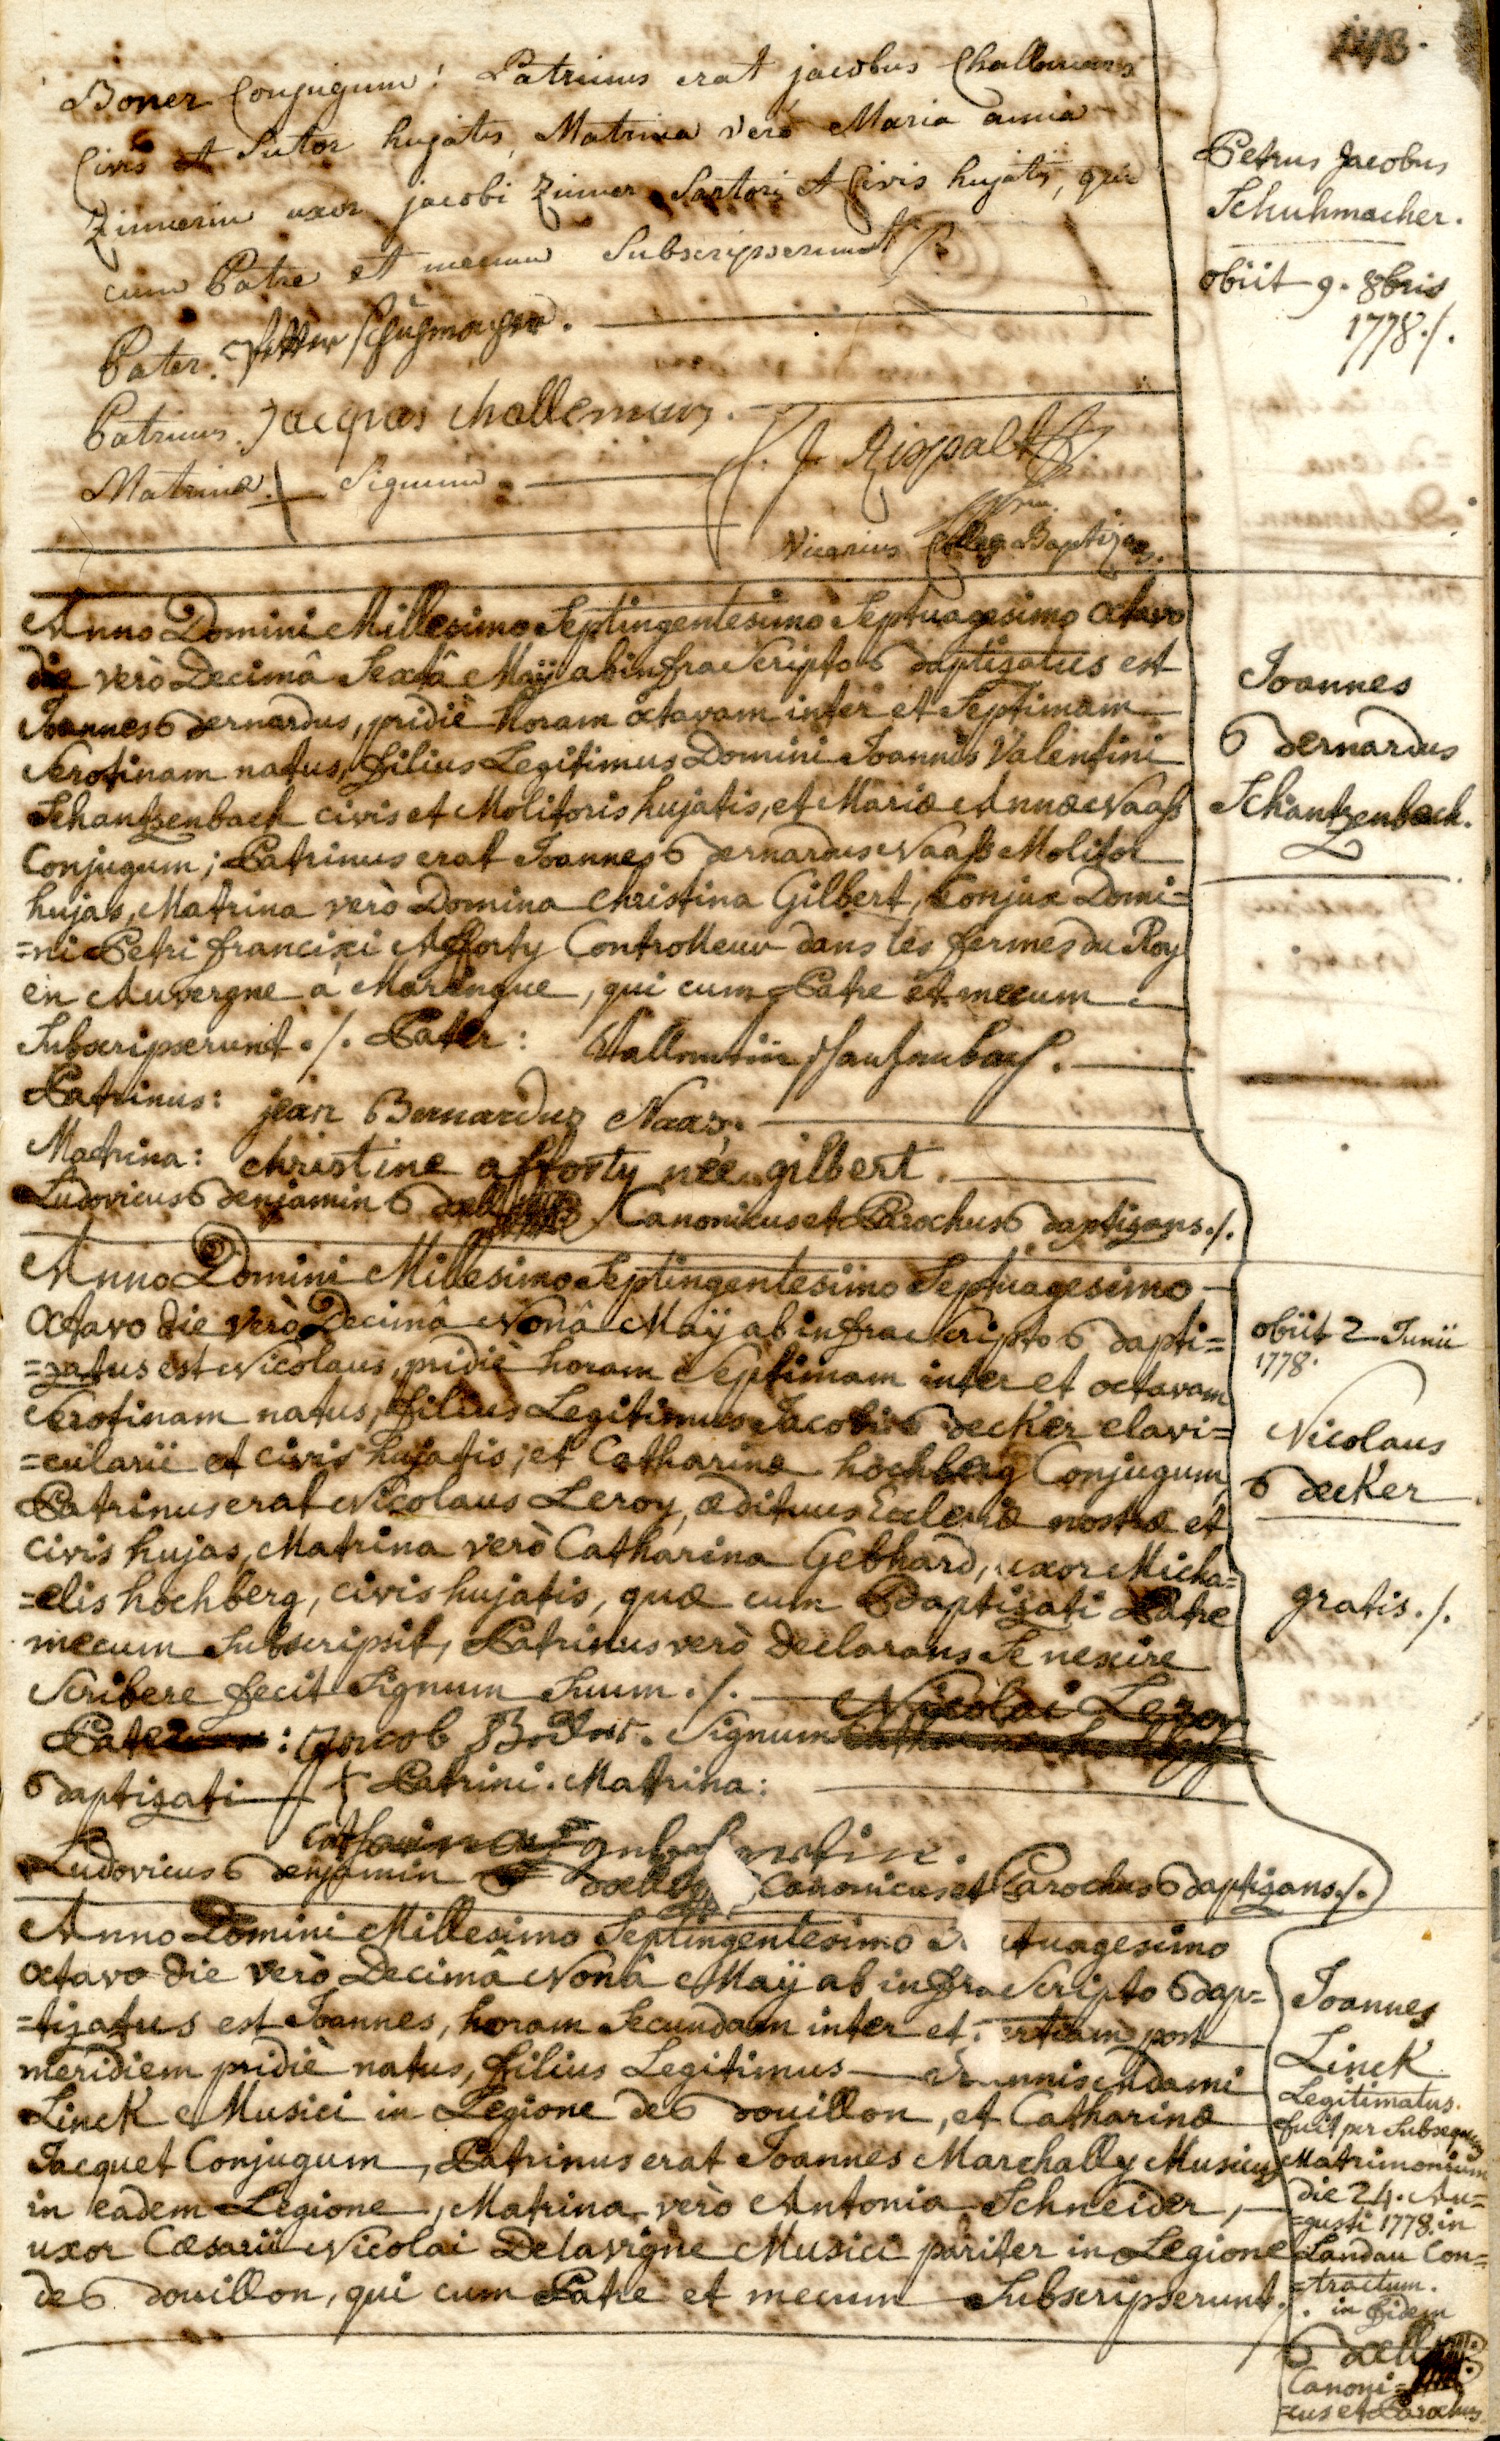 143.
Boner Conjugum! Patrinus erat jacobus Challemans
Civis et Sutor hujatis, Matrina verò Maria anna
Zimmerin uxor jacobi Zimmer Sartoris et Civis hujatis, qui
cum Patre et mecum Subscripserunt
Pater.
Patrinus. Jacques challemans.
Matrina + Signum. J. J. Rispalt
Vicarius Baptizans.
Petrus Jacobus
Schuhmacher.
obiit 9. 8bris
1778./.
Anno Domini Millesimo Septingentesimo Septuagesimo octavo
die verò Decimâ Sextâ Maÿ ab infra Scripto Baptizatus est
Joannes Bernardus, pridiè horam octavam inter et Septimam
Serotinam natus, filius Legitimus Domini Joannis Valentini
Schantzenbach civis et Molitoris hujatis, et Mariæ Annæ Naaß
Conjugum; Patrinus erat Joannes Bernardus Naaß Molitor
hujas, Matrina verò Domina Christina Gilbert, Conjux Domi=
=ni Petri francisci Afforty Controlleur dans les fermes du Roy
en Auvergne à Maringue, qui cum Patre et mecum
Subscripserunt./. Pater:
Patrinus: jean Bernardus Naas.
Matrina: christine afforty née gilbert.
Ludovicus Benjamin Bœll Canonicus et Parochus Baptizans./.
Joannes
Bernardus
Schantzenbach.
Anno Domini Millesimo Septingentesimo Septuagesimo
Octavo die verò Decimâ Nonâ Maÿ ab infra Scripto Bapti=
=zatus est Nicolaus, pridiè horam Septimam inter et octavam
Serotinam natus, filius Legitimus Jacobi Becker clavi=
=cularii et civis hujatis, et Catharinæ hochberg Conjugum,
Patrinus erat Nicolaus Leroy, ædituus Ecclesiæ nostræ et
civis hujas, Matrina verò Catharina Gebhard, uxor Micha=
=elis hochberg, civis hujatis, quæ cum Baptizati Patre
mecum Subscripsit, Patrinus verò declarans Se nescire
Scribere fecit Signum Suum./. Nicolai Leroy
Pater: Jacob Signum
Baptizati + Patrini. Matrina:
Ludovicus Benjamin Bœll Canonicus et Parochus Baptizans./.
obiit 2 Junii
1778.
Nicolaus
Becker
gratis./.
Anno Domini Millesimo Septingentesimo tuagesimo
Octavo die verò Decimâ Nonâ Maÿ ab infra Scripto Bap=
=tizatus est Joannes, horam Secundam inter et ertiam post
meridiem pridiè natus, filius Legitimus annis adami
Linck Musici in Legione de Bouillon, et Catharinæ
Jacquet Conjugum, Patrinus erat Joannes Marchally Musicus
in eadem Legione, Matrina verò Antonia Schneider,
uxor Cæsarii Nicolai Delavigne Musici pariter in Legione
de Bouillon, qui cum Patre et mecum Subscripserunt.
Joannes
Linck
Legitimatus
fuit per Subsequens
Matrimonium
die 24. Au=
=gusti 1778. in
Landau Con=
=tractum.
in fidem
Bœll
Canoni=
=cus et Parochus